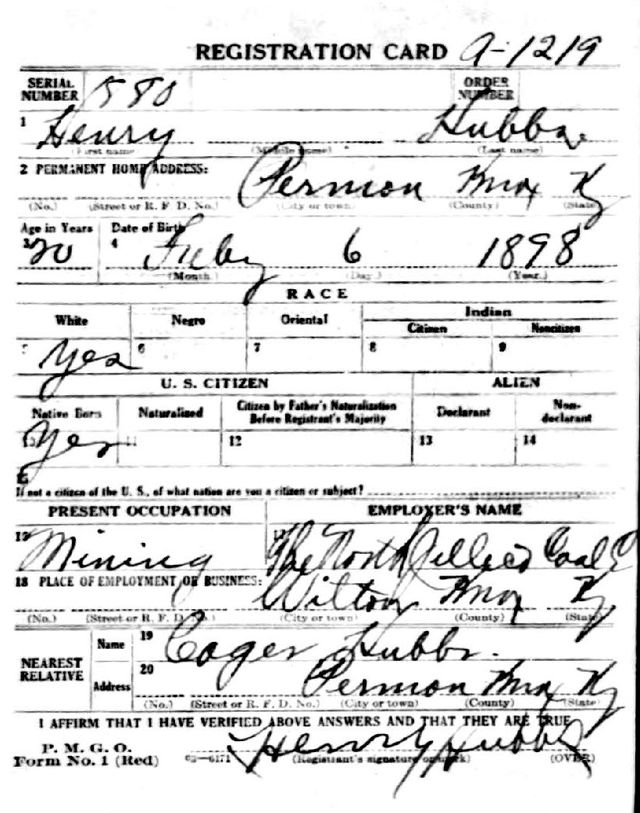 REGISTRATION CARD A-1219
SERIAL NUMBER 1580 ORDER NUMBER
1 Henry Hubbs
(First name) (Middle name) (Last name)
2 PERMANENT HOME ADDRESS: Permon Knox Ky
(No.) (Street or R. F. D. No.) (City or town) (County) (State)
Age in Years Date of Birth
3 20 4 Feby 6 1898
(Month.) (Day.) (Year.)
RACE
White Negro Oriental Indian
Citizen Noncitizen
5 Yes 6 7 8 9
U. S. CITIZEN ALIEN
Native Born Naturalized Citizen by Father's Naturalization Before Registrant's Majority Declarant Non-declarant
10 Yes 11 12 13 14
15
If not a citizen of the U. S., of what nation are you a citizen or subject?
PRESENT OCCUPATION EMPLOYER'S NAME
Mining The North Coal
18 PLACE OF EMPLOYMENT OR BUSINESS: Wilton Knox Ky
(No.) (Street or R. F. D. No.) (City or town) (County) (State)
NEAREST RELATIVE Name 19 Cager Hubbs.
Address 20 Permon Knox Ky
(No.) (Street or R. F. D. No.) (City or town) (County) (State)
I AFFIRM THAT I HAVE VERIFIED ABOVE ANSWERS AND THAT THEY ARE TRUE
P. M. G. O.
Form No. 1 (Red) 03—6171 Henry Hubbs
(Registrant's signature or mark) (OVER)